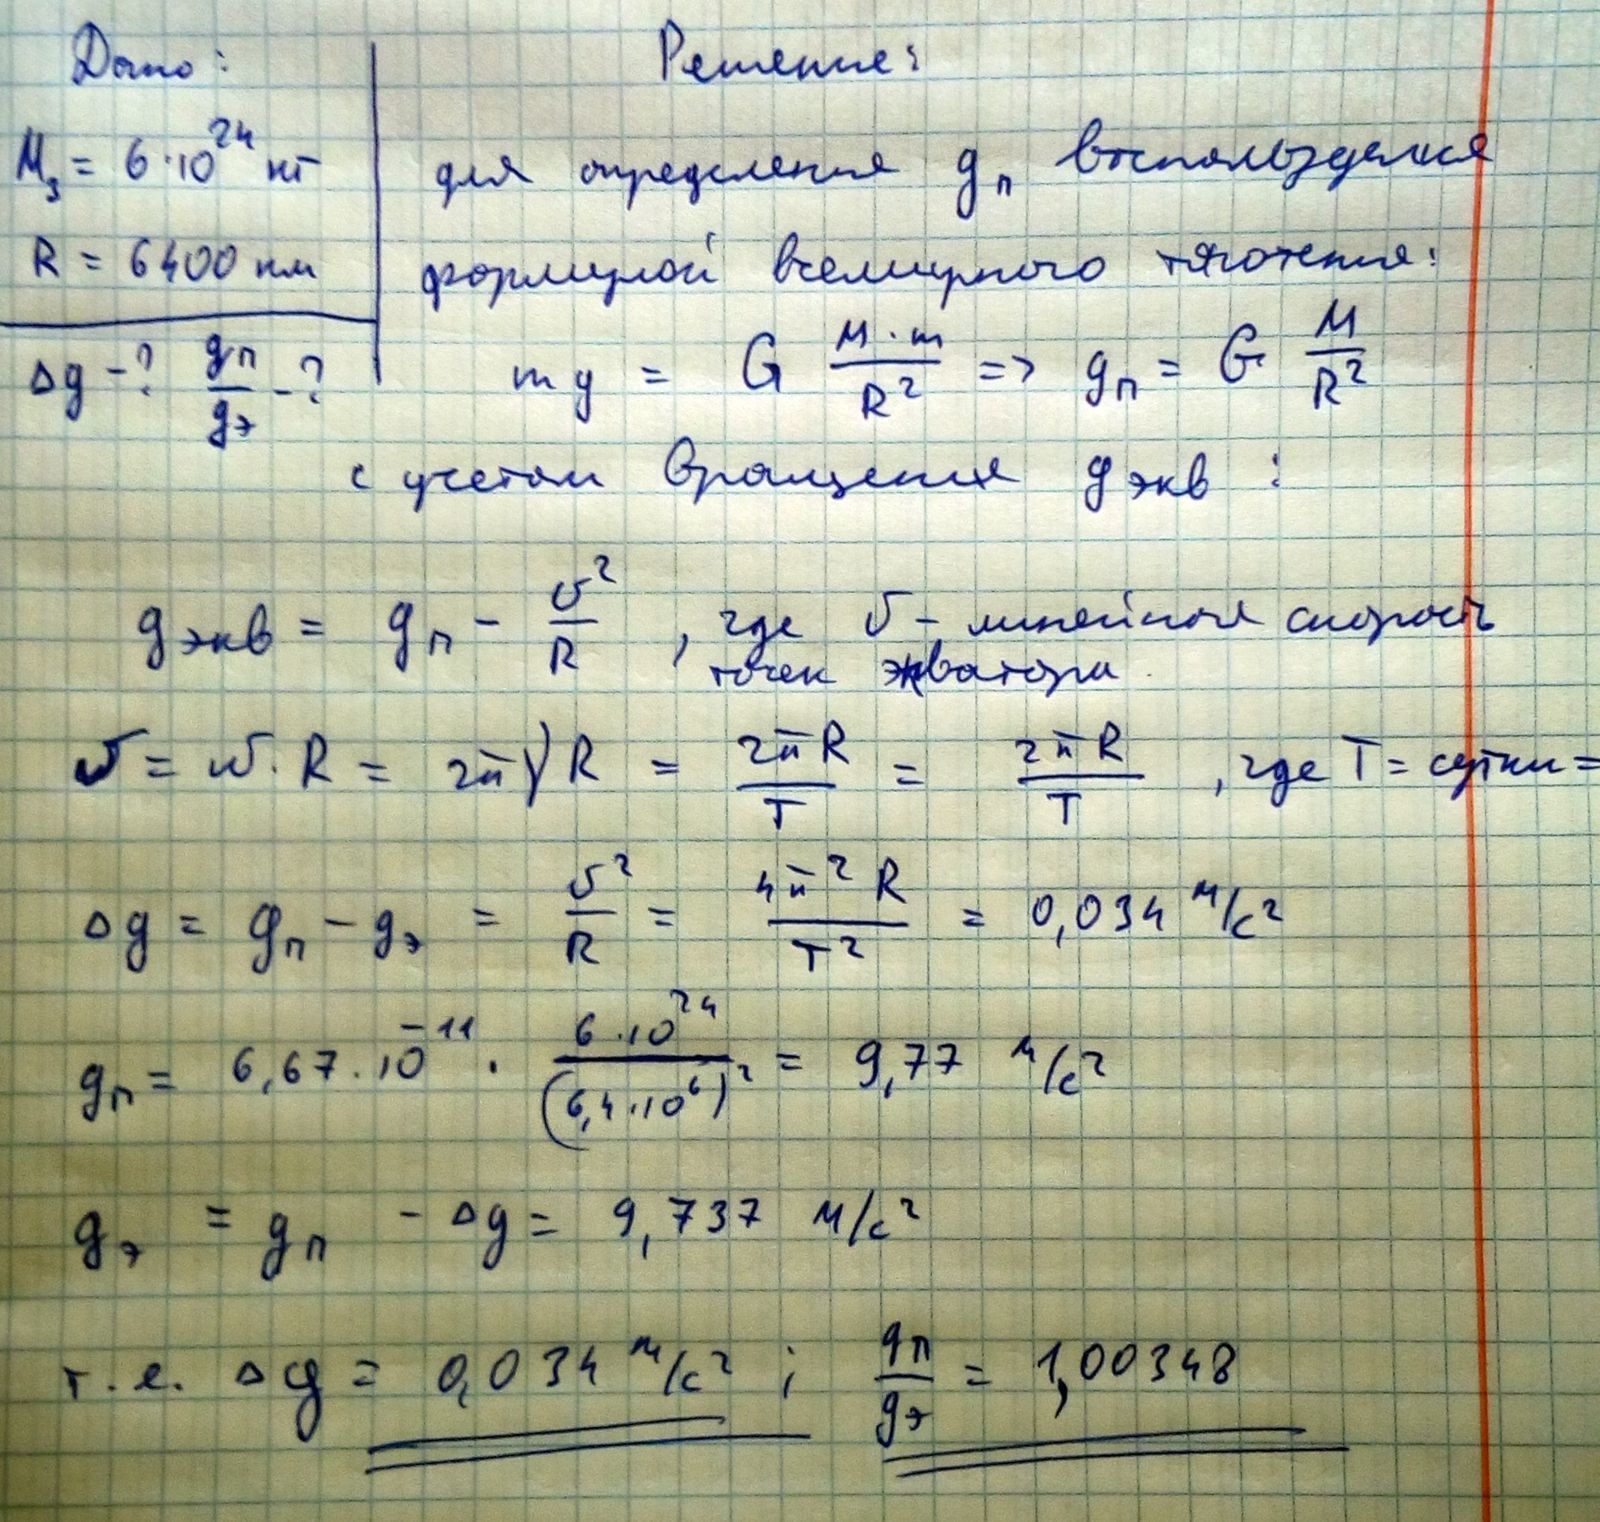 Дано:
M₃ = 6·10²⁴ кг
R = 6400 км
Δg -? gп/gэ -?
Решение:
для определения gп воспользуемся
формулой всемирного тяготения:
mg = G M·m/R² => gп = G M/R²
с учетом вращения gэкв :
gэкв = gп - υ²/R , где υ - линейная скорость
точек экватора
υ = ω·R = 2πνR = 2πR/T = 2πR/T , где T = сутки =
Δg = gп - gэ = υ²/R = 4π²R/T² = 0,034 м/с²
gп = 6,67·10⁻¹¹ · 6·10²⁴/(6,4·10⁶)² = 9,77 м/с²
gэ = gп - Δg = 9,737 м/с²
т.е. Δg = 0,034 м/с² ; gп/gэ = 1,00348